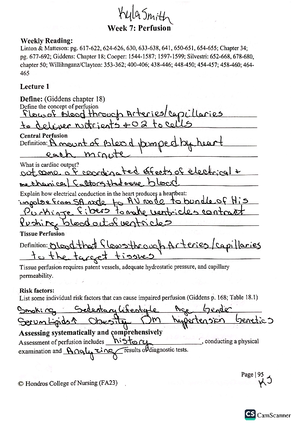 Kyla Smith
Week 7: Perfusion
Weekly Reading:
Linton & Matteson: pg. 617-622, 624-626, 630, 633-638, 641, 650-651, 654-655; Chapter 34;
pg. 677-692; Giddens: Chapter 18; Cooper: 1544-1587; 1597-1599; Silvestri; 652-668, 678-680,
chapter 50; Willihnganz/Clayton: 353-362; 400-406; 438-446; 448-450; 454-457; 458-460; 464-
465
Lecture 1
Define: (Giddens chapter 18)
Define the concept of perfusion
flow of blood through Arteries/capillaries
to deliver nutrients + O2 to cells
Central Perfusion
Definition: Amount of blood pumped by heart
each minute
What is cardiac output?
outcome of coordinated effects of electrical +
mechanical factors that move blood
Explain how electrical conduction in the heart produces a heartbeat:
impulse from SA node to AV node to bundle of His
Purkinje fibers to make ventricles contract
Pushing blood out of ventricles
Tissue Perfusion
Definition: blood that flows through Arteries/capillaries
to the target tissues
Tissue perfusion requires patent vessels, adequate hydrostatic pressure, and capillary
permeability.
Risk factors:
List some individual risk factors that can cause impaired perfusion (Giddens p. 168; Table 18.1)
Smoking Sedentary lifestyle Age Gender
Serum lipids↑ Obesity DM hypertension Genetics
Assessing systematically and comprehensively
Assessment of perfusion includes history, conducting a physical
examination and Analyzing results of diagnostic tests.
Page | 95
KS
© Hondros College of Nursing (FA23)
CS CamScanner